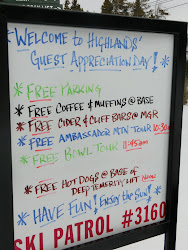 *WELCOME TO HIGHLANDS'
GUEST APPRECIATION DAY! *
* FREE PARKING
* FREE COFFEE & MUFFINS @ BASE
* FREE CIDER & CLIFF BARS @ MGR
* FREE AMBASSADOR MTN TOUR 10:30am
* FREE BOWL TOUR 11:45am
* FREE HOT DOGS @ BASE OF
DEEP TEMERITY LIFT NOON
* HAVE FUN! ENJOY THE SUN! *
SKI PATROL #3160